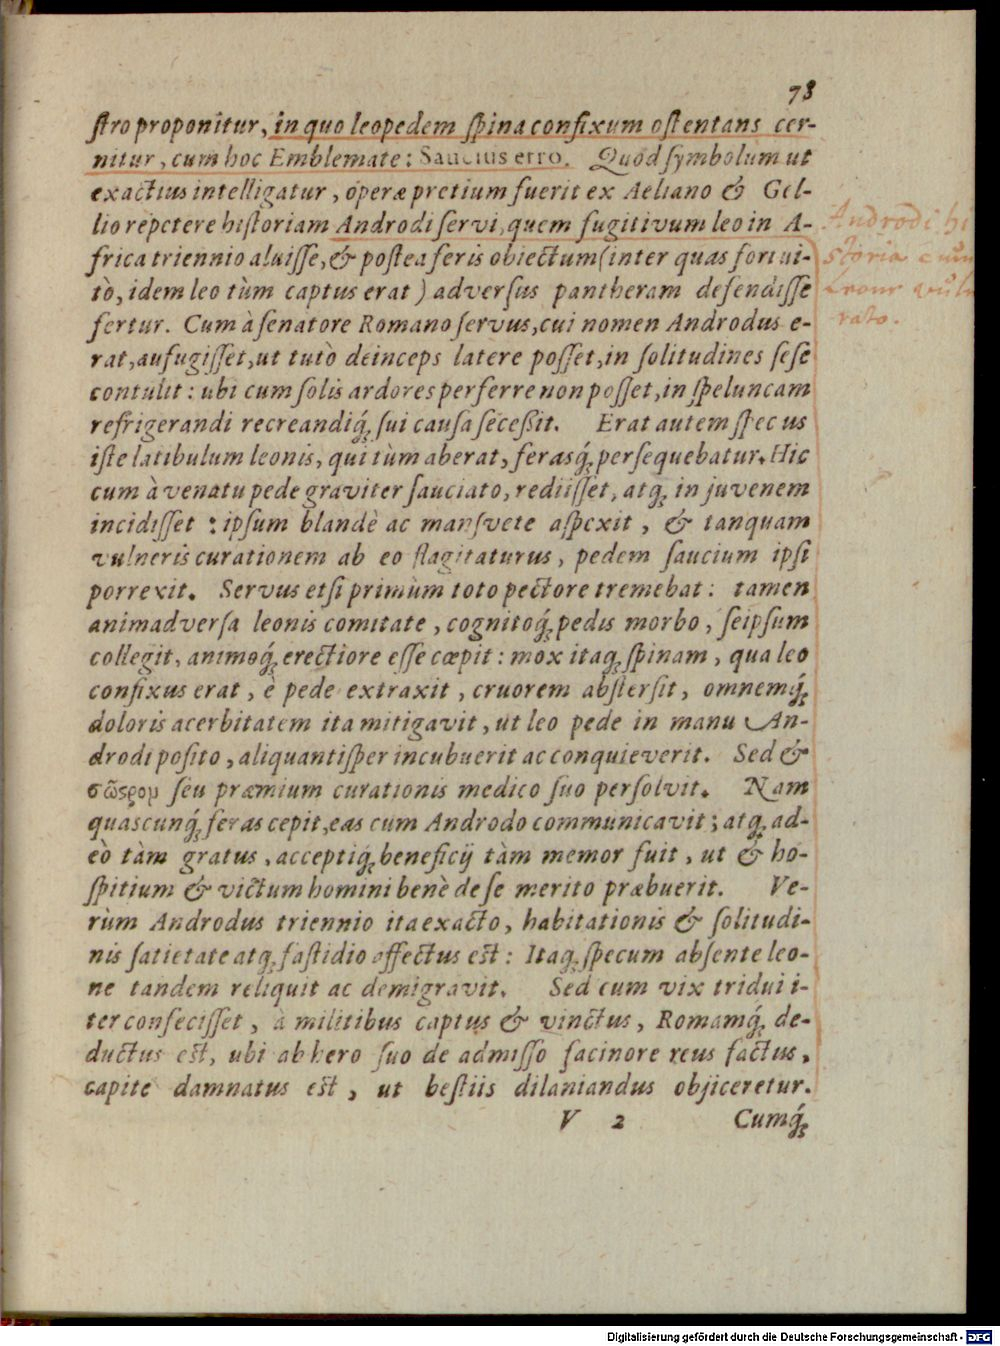 78
ſtro proponitur, in quo leo pedem ſpina confixum oſtentans cer-
nitur, cum hoc Emblemate: Saucius erro. Quod ſymbolum ut
exactius intelligatur, operæ pretium fuerit ex Aeliano & Gel-
lio repetere hiſtoriam Androdi ſervi, quem fugitivum leo in A-
frica triennio aluiſſe, & poſtea feris obiectum (inter quas fortui-
tò, idem leo tùm captus erat) adverſus pantheram defendiſſe
fertur. Cum à ſenatore Romano ſervus, cui nomen Androdus e-
rat, aufugiſſet, ut tutò deinceps latere poſſet, in ſolitudines ſeſe
contulit: ubi cum ſolis ardores perferre non poſſet, in ſpeluncam
refrigerandi recreandiq́ʒ ſui cauſa ſeceßit. Erat autem ſpecus
iſte latibulum leonis, qui tùm aberat, ferasq́ʒ perſequebatur. Hic
cum à venatu pede graviter ſauciato, rediiſſet, atqʒ in juvenem
incidiſſet : ipſum blandè ac manſvete aſpexit, & tanquam
vulneris curationem ab eo flagitaturus, pedem ſaucium ipſi
porrexit. Servus etſi primùm toto pectore tremebat: tamen
animadverſa leonis comitate, cognitoq́ʒ pedis morbo, ſeipſum
collegit, animoq́ʒ erectiore eſſe cœpit: mox itaqʒ ſpinam, qua leo
confixus erat, è pede extraxit, cruorem abſterſit, omnemq́ʒ
doloris acerbitatem ita mitigavit, ut leo pede in manu An-
drodi poſito, aliquantiſper incubuerit ac conquieverit. Sed &
σῶςρομ ſeu præmium curationis medico ſuo perſolvit. Nam
quascunq́ʒ feras cepit, eas cum Androdo communicavit; atqʒ ad-
eò tàm gratus, acceptiq́ʒ beneficij tàm memor fuit, ut & ho-
ſpitium & victum homini benè de ſe merito præbuerit. Ve-
rùm Androdus triennio ita exacto, habitationis & ſolitudi-
nis ſatietate atqʒ faſtidio affectus eſt: Itaqʒ ſpecum abſente leo-
ne tandem reliquit ac demigravit. Sed cum vix tridui i-
ter confeciſſet, à militibus captus & vinctus, Romamq́ʒ de-
ductus eſt, ubi ab hero ſuo de admiſſo facinore reus factus,
capite damnatus eſt, ut beſtiis dilaniandus objiceretur.
V 2 Cumq́ʒ
Androdi hi
storia cum
Leone vuln
rato.
Digitalisierung gefördert durch die Deutsche Forschungsgemeinschaft - DFG